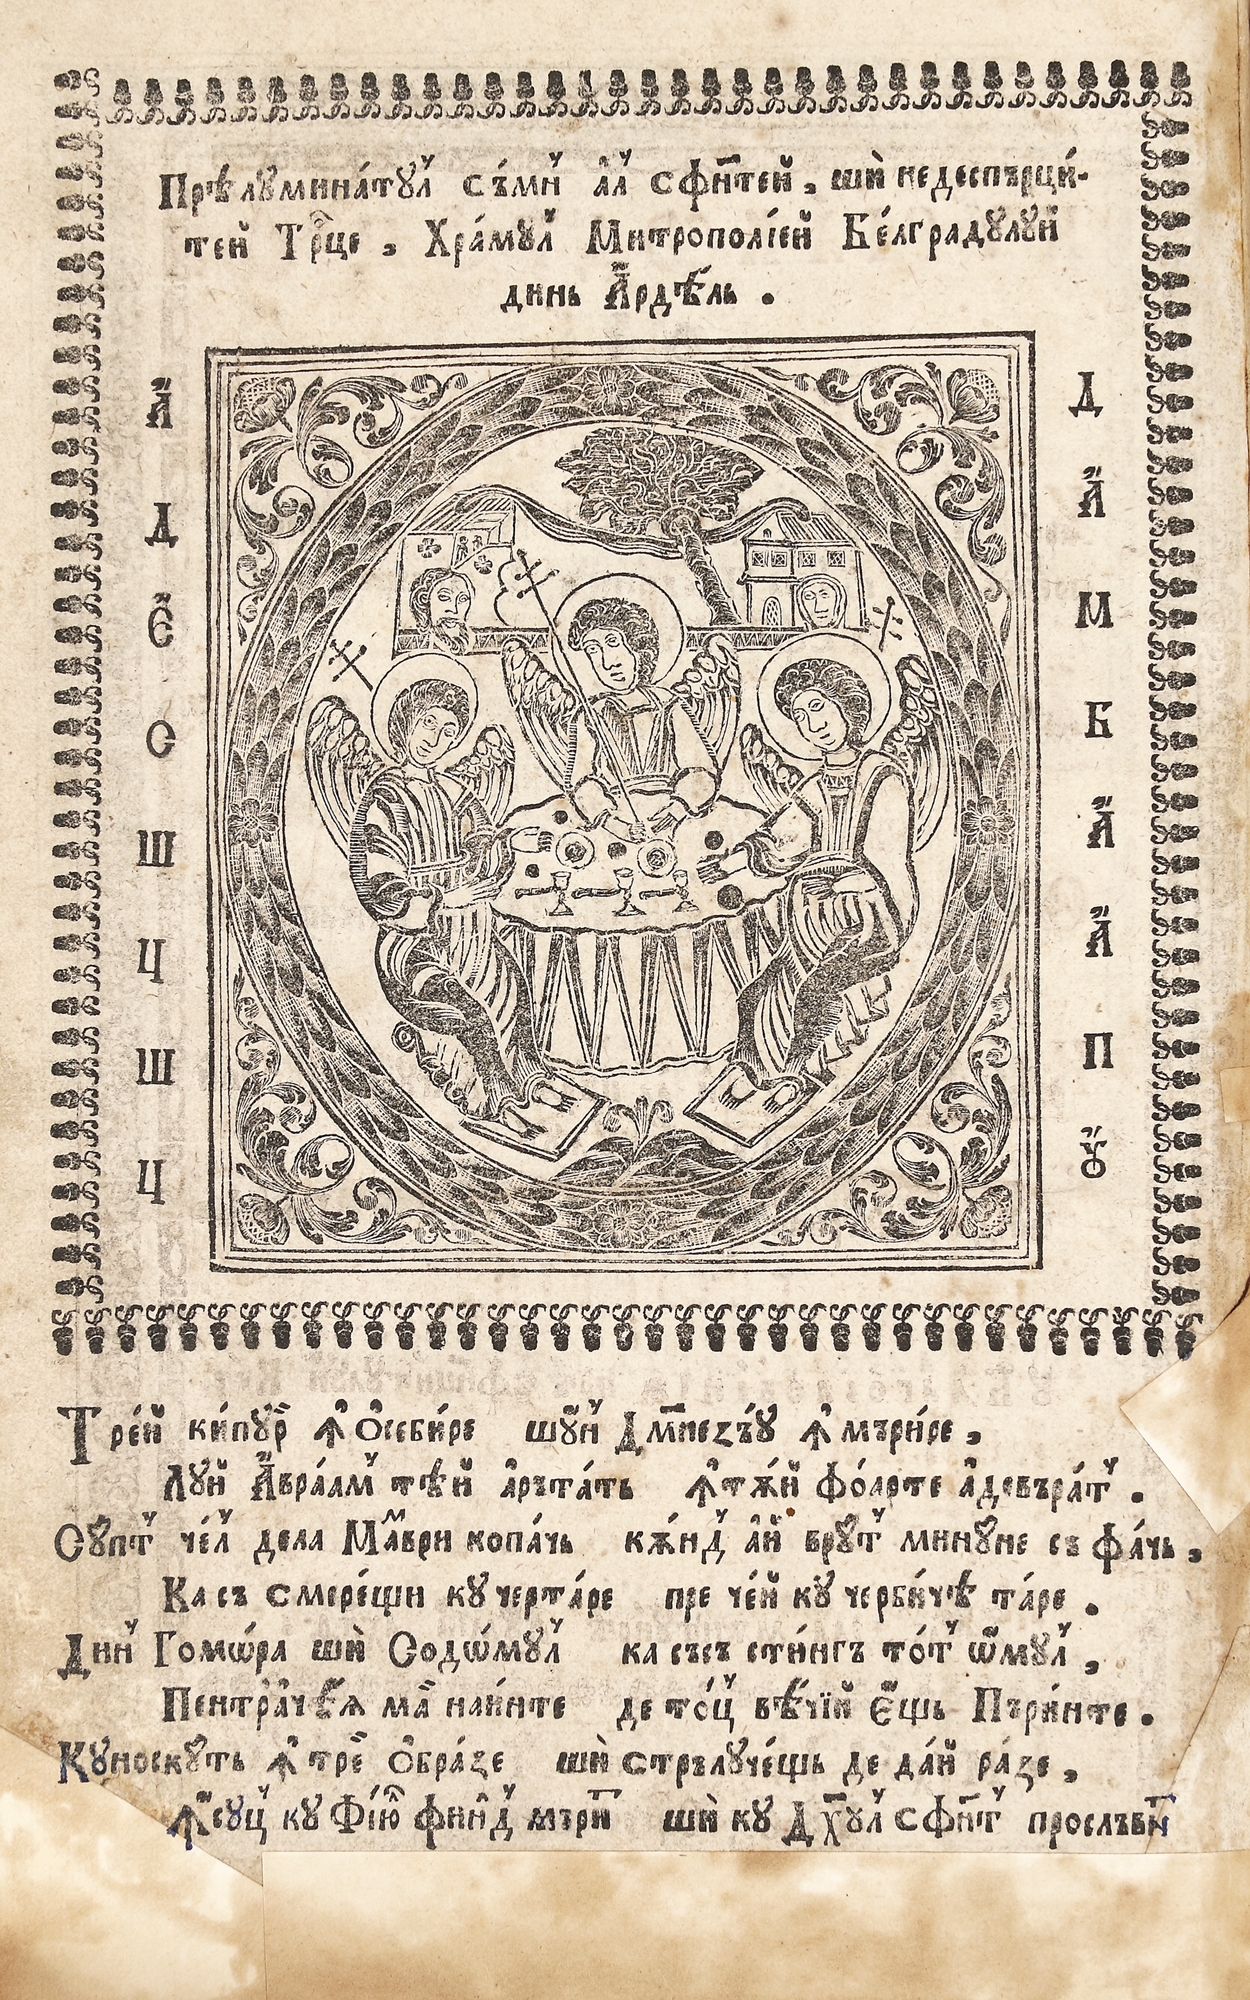 Прѣлꙋмина́тꙋл съ́мн ал сфн҃тей, шѝ недеспърци́-
тей Тр҇це, Хра́мꙋл Митрополі́ей Бе́лградꙋлꙋй
динь Ардѣ́ль.
А
Д
Е
С
Ш
Ц
Ш
Ц
Д
А
М
Б
А
А
П
Ꙋ
Тре́й ки́пꙋр ꙟ ѻсеби́ре шꙋ́й Дм҃незъ́ꙋ ꙟ мъри́ре,
Лꙋй Авраа́м тѣ́й арътáть ꙟтѫ́й фо́арте адевъра́т.
Сꙋпт че́л дела Ма́мври копа́чь кѫ́нд ай врꙋ́т минꙋне съ фа́чь,
Ка съ смере́щи кꙋ черта́ре пре че́й кꙋ черби́чѣ та́ре.
Дин Гомѡ́ра шѝ Содѡ́мꙋл ка съсъ сти́нгъ то́т ѡмꙋл,
Пентрꙋ ма наи́нте де то́ц вѣ́чїй Е҆щь Пъри́нте.
Кꙋноскꙋть ꙟ тре ѻбра́зе шѝ стрълꙋче́щь де да́й ра́зе,
кꙋ Фі́ю фїи́нд мъри шѝ кꙋ Дх҃ꙋл сфн҃т прослъви